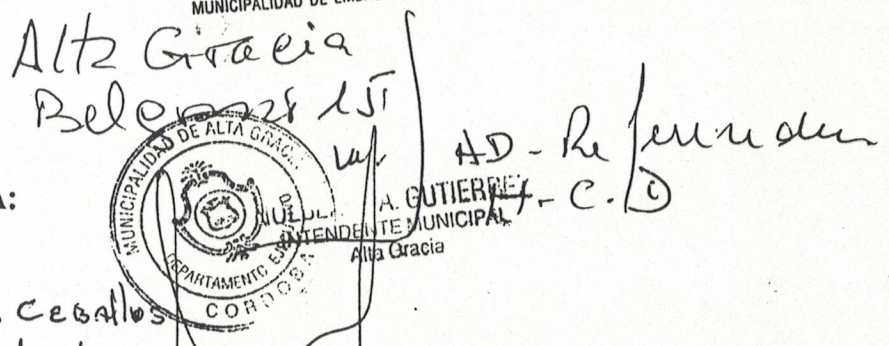 MUNICIPALIDAD DE
Alta Gracia
Belgrano 15
AD-Referendum
H. C. D
MUNICIPALIDAD DE ALTA GRACIA
DEPARTAMENTO
CORDOBA
A. GUTIERREZ
INTENDENTE MUNICIPAL
Alta Gracia
A:
Ceballos